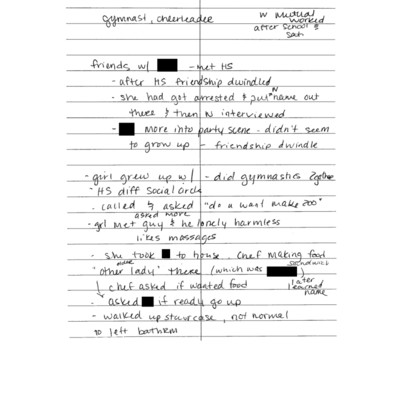 gymnast, cheerleader
W Mutual
worked
after school &
sat
friends w/ - met HS
- after HS friendship dwindled
- she had got arrested & put N name out
there & then N interviewed
- more into party scene - didn't seem
to grow up - friendship dwindle
- girl grew up w/ - did gymnastics together
- HS diff social circle
- called & asked "do u want make 200"
asked more
- girl met guy & he lonely harmless
likes massages
- she took to house. chef making food
sandwich
"other lady" there (which was )
later
learned
name
chef asked if wanted food
- asked if ready go up
- walked up staircase, not normal
to left bathrm